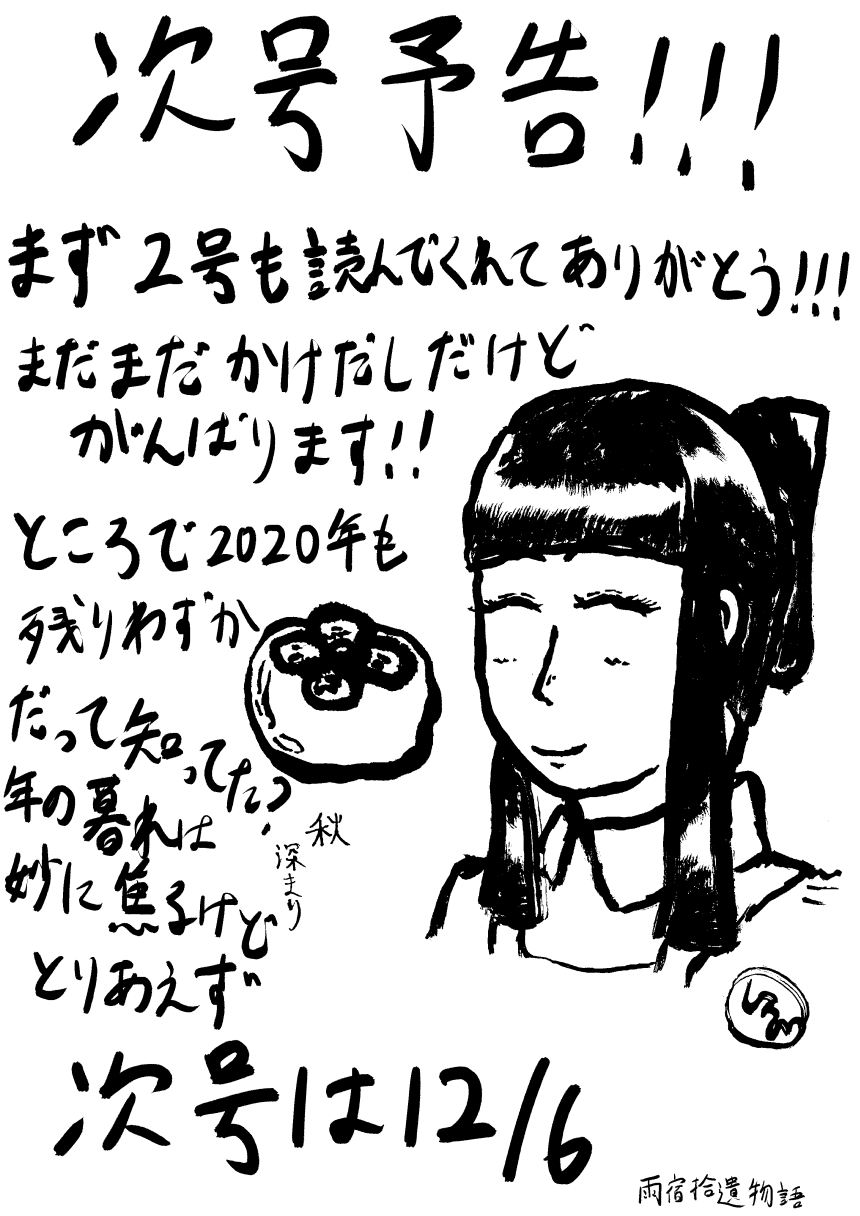 次号予告!!!
まず2号も読んでくれてありがとう!!!
まだまだかけだしだけど
がんばります!!
ところで2020年も
残りわずか
だって知ってた?
年の暮れは
妙に焦るけど
とりあえず
秋
深まり
次号は12/6
雨宿拾遺物語